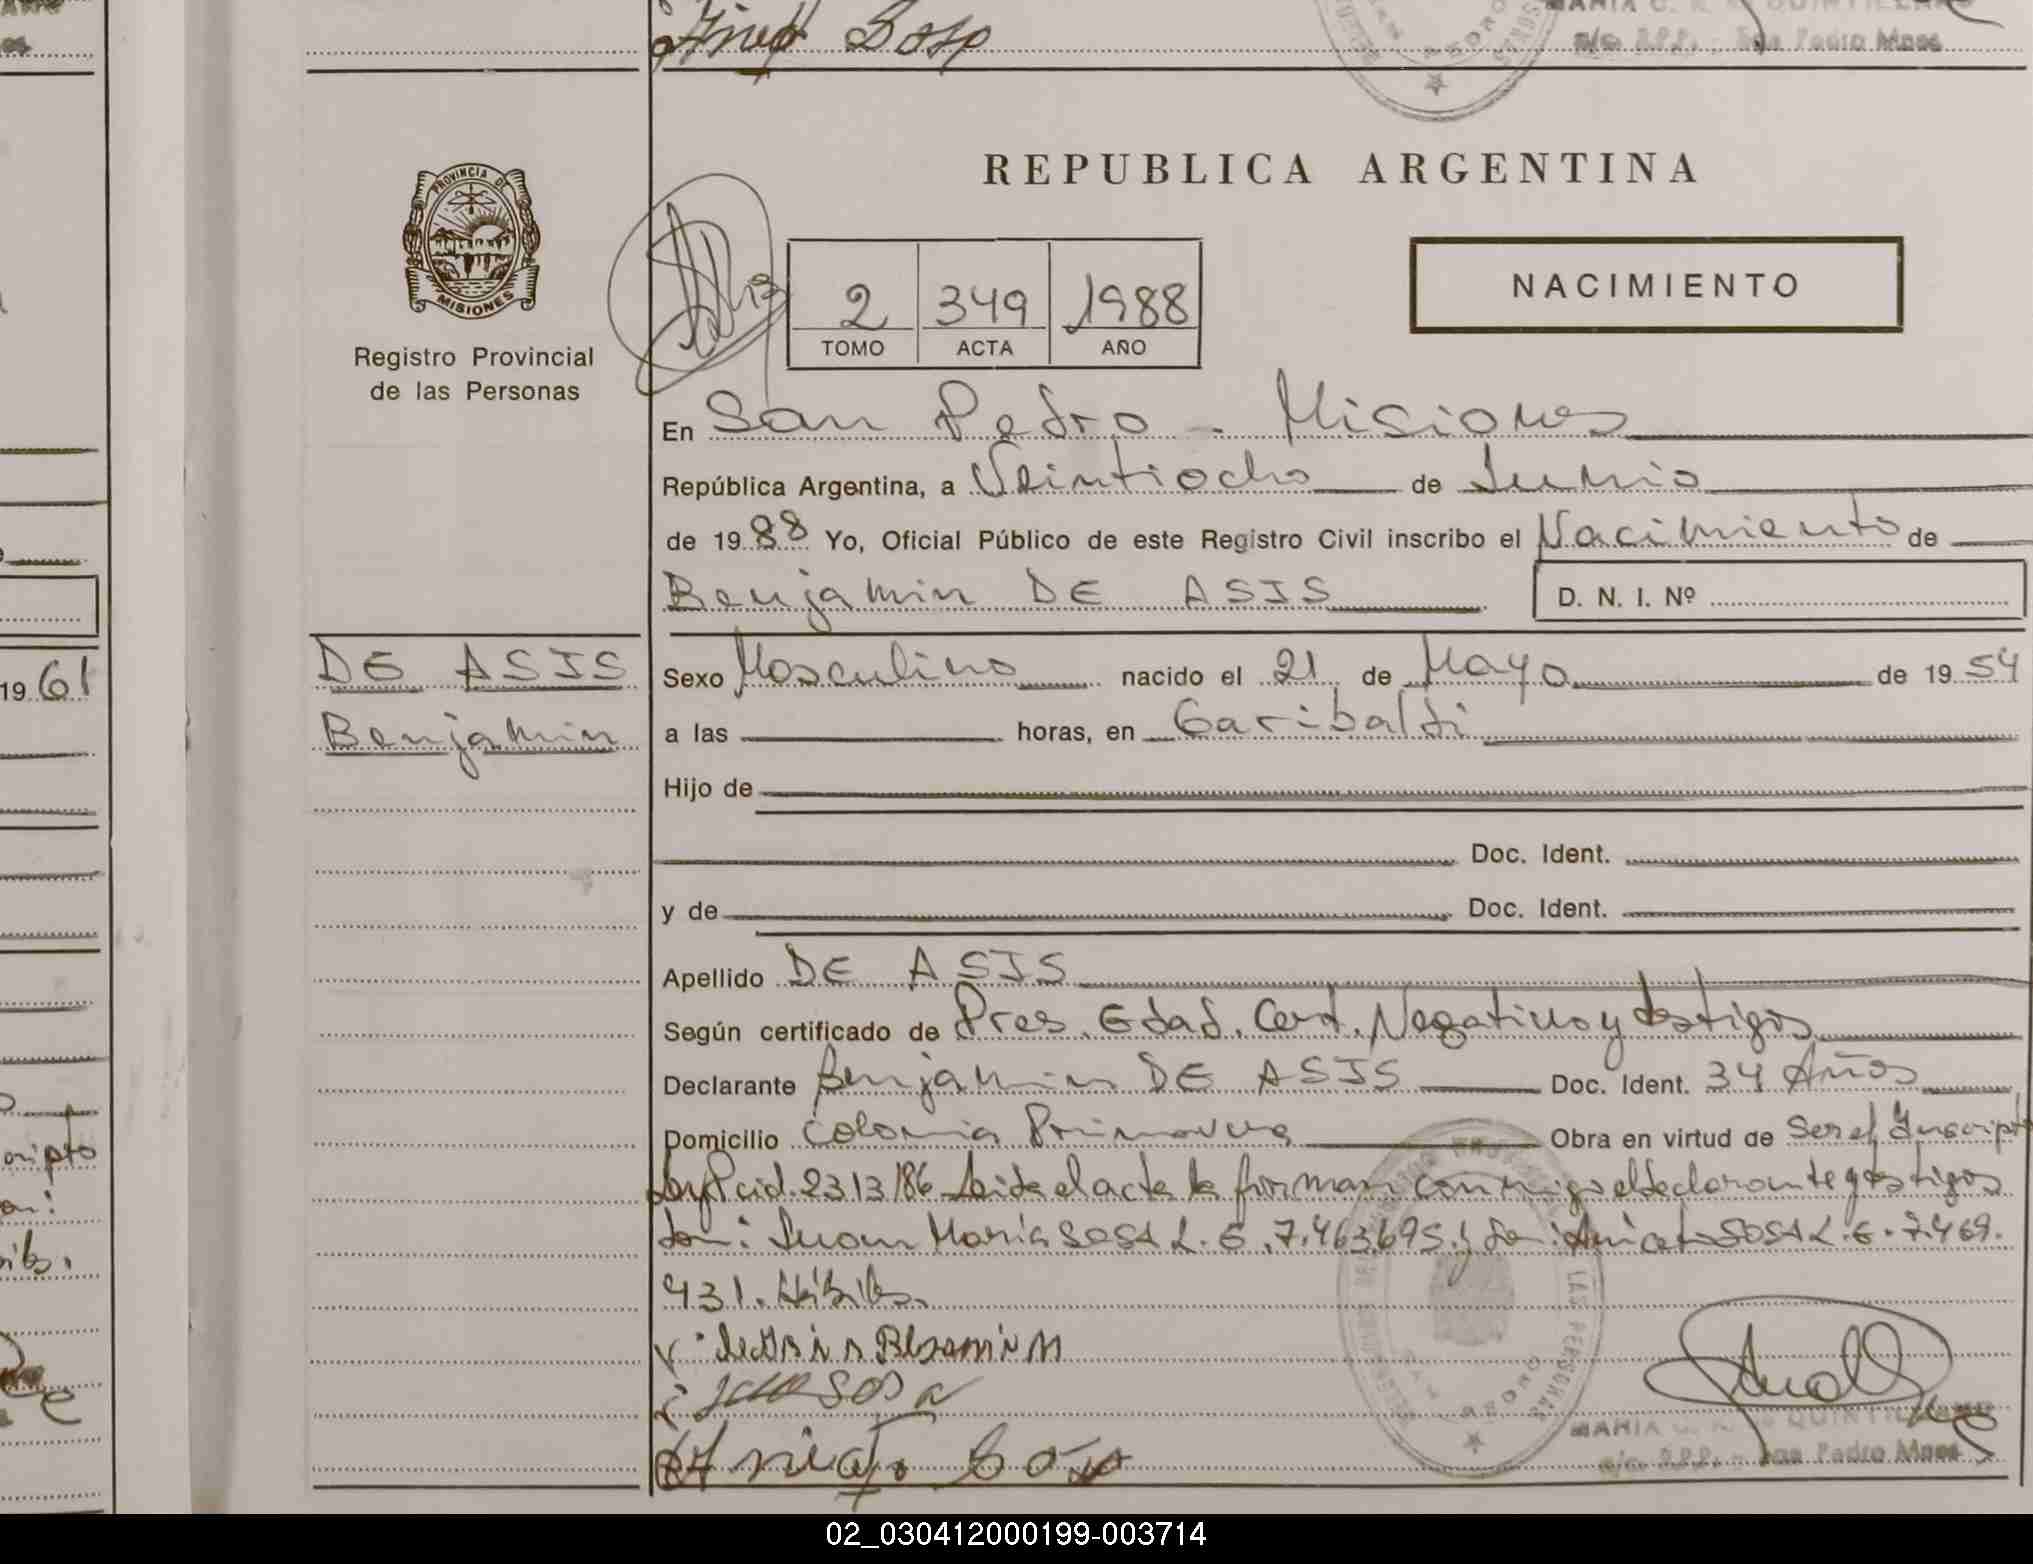 Sosa
San Pedro Mnes
REPUBLICA ARGENTINA
PROVINCIA DE
MISIONES
Registro Provincial
de las Personas
2 349 1988
TOMO ACTA AÑO
NACIMIENTO
En San Pedro - Misiones
República Argentina, a Veintiocho de Junio
de 1988 Yo, Oficial Público de este Registro Civil inscribo el Nacimiento de
Benjamin DE ASIS D. N. I. Nº
DE ASIS
Benjamin
Sexo Masculino nacido el 21 de Mayo de 1954
a las horas, en Garibaldi
Hijo de
Doc. Ident.
y de Doc. Ident.
Apellido DE ASIS
Según certificado de Pres. Edad. Cert. Negativo y testigos
Declarante Benjamin DE ASIS Doc. Ident. 34 Años
Domicilio Colonia Primavera Obra en virtud de Ser el Inscripto
Ley Pcial. 2313/86 Leida el acta la firman conmigo el declarante y testigos
don: Juan Maria SOSA L.E. 7.463.695 y don: Aniceto SOSA L.E. 7.469.
431. Hábiles.
SOSA
Aniceto Sosa
REGISTRO PROVINCIAL DE LAS PERSONAS
SAN PEDRO
MARIA C. QUINTILLANO
R.P.P. - San Pedro Mnes
19 61
02_030412000199-003714